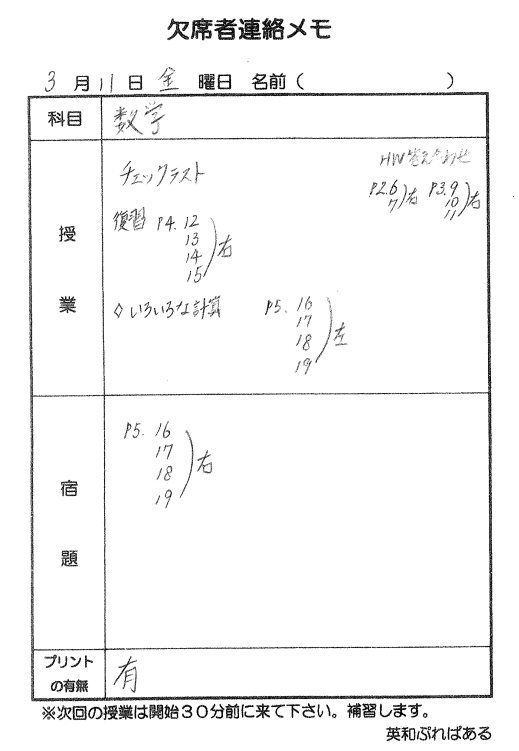 欠席者連絡メモ
3月11日 金 曜日 名前( )
科目 数学
授業
チェックテスト
HW答え合わせ
P2.6 7)右 P3.9 10 11)右
復習 P4.12 13 14 15)右
◇いろいろな計算 P5.16 17 18 19)左
宿題
P5.16 17 18 19)右
プリントの有無 有
※次回の授業は開始30分前に来て下さい。補習します。
英和ぷれぱある